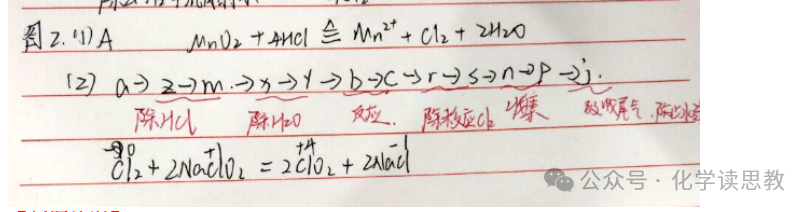 图2.(1)A MnO₂+4HCl ≜ Mn²⁺+Cl₂+2H₂O
(2) a→z→m→x→y→b→c→r→s→n→p→j.
除HCl 除H₂O 反应. 除未反应Cl₂ 收集 吸收尾气.
0 +1 +4 -1
Cl₂+2NaClO₂=2ClO₂+2NaCl
公众号·化学读思教